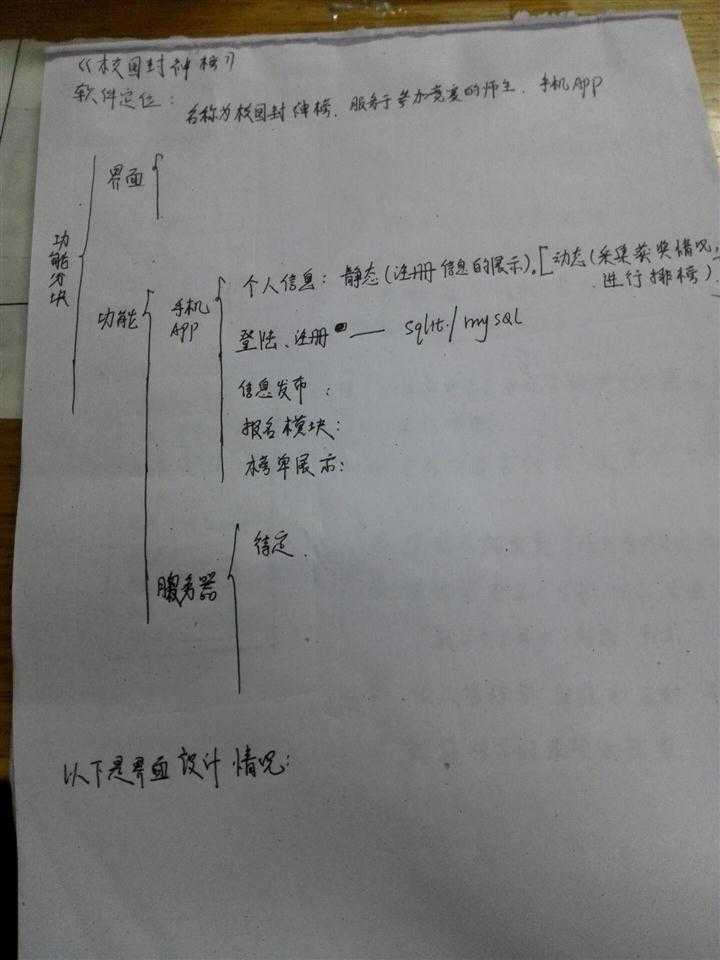 《校园封神榜》
软件定位：
名称为校园封神榜．服务于参加竞赛的师生．手机APP
功能分块
界面
功能
手机APP
个人信息：静态（注册信息的展示）。[动态（采集获奖情况，
进行排榜）
登陆、注册 — sqlit./mysql
信息发布：
报名模块：
榜单展示：
服务器
待定．
以下是界面设计情况：